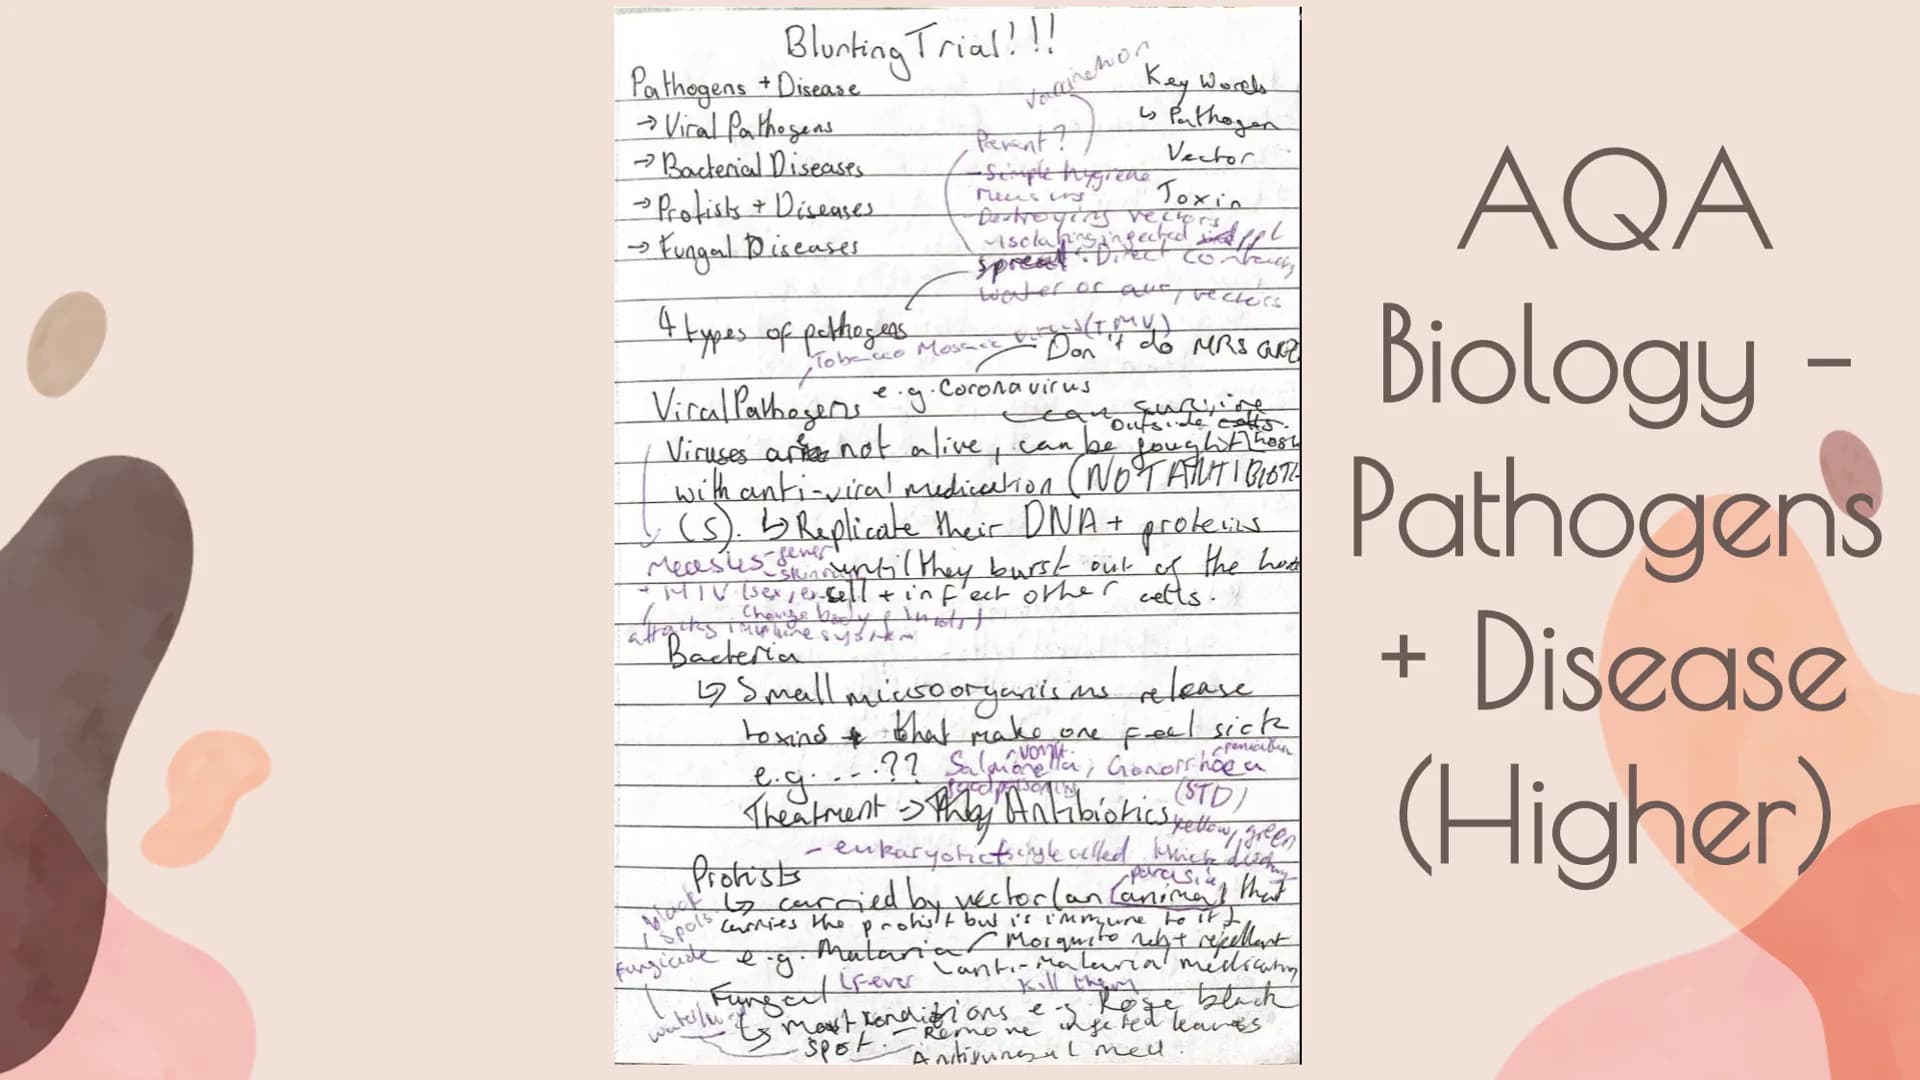 Blurting Trial!!!
Pathogens + Disease
→ Viral Pathogens
→ Bacterial Diseases
→ Protists + Diseases
→ Fungal Diseases
Key Words
↳ Pathogen
Vector
Toxin
- Simple hygiene
Destroying vectors
- Isolating infected ppl
spread: Direct contact,
water or air, vectors
4 types of pathogens
Tobacco Mosaic virus (TMV)
Don't do MRS
Viral Pathogens e.g. Coronavirus
can survive
outside cells.
Viruses are not alive, can be fought host
with anti-viral medication (NOT ANTIBIOTI
CS). ↳ Replicate their DNA + proteins
Measles - fever
- skin rash
until they burst out of the host
+ HIV (sex, ex
cell + infect other cells.
change body fluids)
attacks immune system
Bacteria
↳ Small microorganisms release
toxins + that make one feel sick
e.g. ....?? Salmonella, Gonorrhoea
vomit
penicillin
food poisoning
(STD)
Treatment → Antibiotics
yellow, green
thick discharge
- eukaryotic + single celled
Protists
parasite
↳ carried by vector (an animal that
carries the protist but is immune to it)
e.g. Malaria - Mosquito net + repellant
anti-malarial medication
Fever
kill them
black
spots
Fungicide
Fungal
↳ most conditions e.g. Rose black
spot. - Remove infected leaves
Antifungal med.
AQA
Biology -
Pathogens
+ Disease
(Higher)